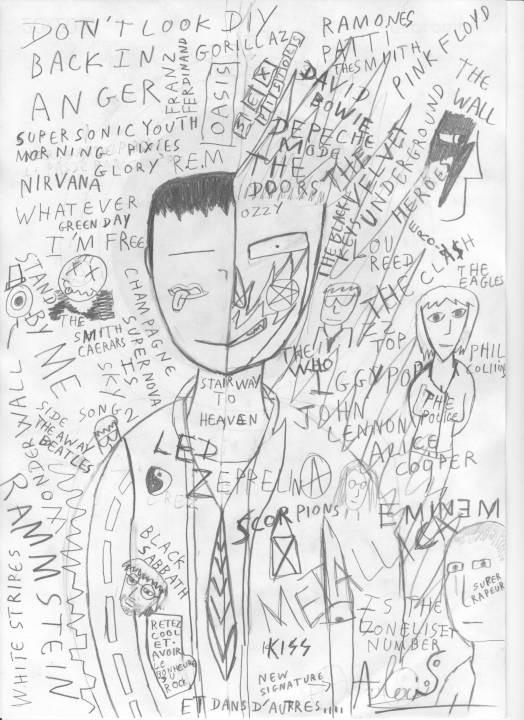 DON'T LOOK
BACK IN
ANGER
DIY
FRANZ
FERDINAND
GORILLAZ
OASIS
SEX
PISTOLS
RAMONES
PATTI
SMITH
THE
PINK FLOYD
THE
WALL
DAVID
BOWIE
DEPECHE
MODE
THE
VELVET
UNDERGROUND
HEROES
SUPERSONIC YOUTH
MORNING PIXIES
GLORY R.E.M
NIRVANA
THE
DOORS
OZZY
WHATEVER
GREEN DAY
I'M FREE
THE BLACK
KEYS
LOU
REED
THE CLASH
THE
EAGLES
STAND
BY ME
THE
SMITH
CHAMPAGNE
SUPERNOVA
HIS
SKY
ZZ
TOP
THE
WHO
IGGY POP
PHIL
COLLINS
THE
POLICE
STAIRWAY
TO
HEAVEN
JOHN
LENNON
ALICE
COOPER
SONG 2
SIDE
THE AWAY
BEATLES
WONDERWALL
LED
ZEPPELIN
A
SCORPIONS
EMINEM
WHITE STRIPES
RAMMSTEIN
BLACK
SABBATH
METALLICA
SUPER
RAPEUR
RETEZ
COOL
ET
AVOIR
LE
BONHEUR
DU
ROCK
KISS
IS THE
NUMBER
NEW
SIGNATURE
Alexis
ET DANS D'AUTRES....